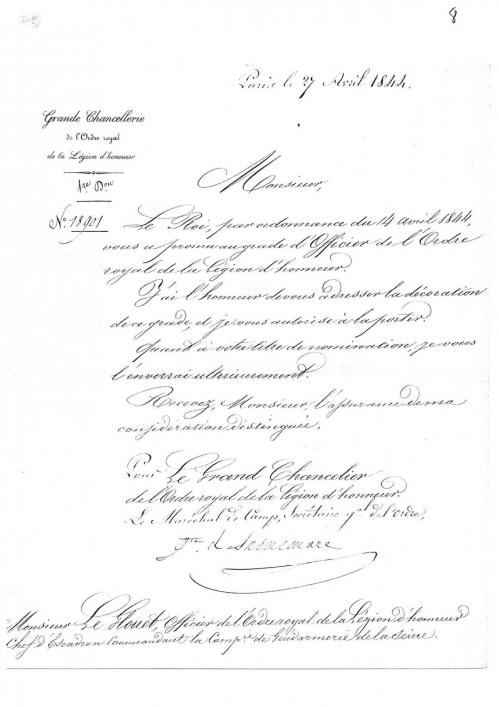 8
Paris le 27 Avril 1844.
Grande Chancellerie
de l'Ordre royal
de la Légion d'honneur
1re Don
No. 18901
Monsieur,
Le Roi, par ordonnance du 14 avril 1844,
vous a promu au grade d'Officier de l'Ordre
royal de la Légion d'honneur.
J'ai l'honneur de vous adresser la décoration
de ce grade, et je vous autorise à la porter.
Quant à votre titre de nomination, je vous
l'enverrai ultérieurement.
Recevez, Monsieur, l'assurance de ma
considération distinguée.
Pour Le Grand Chancelier
de l'Ordre royal de la Légion d'honneur.
Le Maréchal de Camp, Secrétaire gal de l'Ordre,
Vte de Saint mare
Monsieur Le Houet, Officier de l'Ordre royal de la Légion d'honneur
Chef d'Escadron Commandant la Compie de Gendarmerie de la Seine.